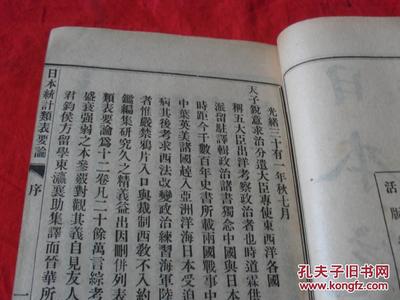 光緒三十有一年秋七月
天子銳意求治分遣大臣專使東西洋各國
稱五大臣出洋考察政治者也時道霖供
派留駐譯輯政治諸書獨念中國與日本
時距今千數百年史書所載兩國戰事中
中葉英美諸國䟐入亞洲洋海日本受迫
病其後考求西法改變政治練習海軍陸
者惟嚴禁鴉片入口與裁制西敎不入約
鑑編集硏究久之精義益出因刪併列表
類表要論為十二卷凡二十餘萬言綜考
盛衰强弱之本參觀對觀其義自見友人
君鈞侯方留學東瀛襄助集譯而晉華所
日本統計類表要論
序
一
日
活
版